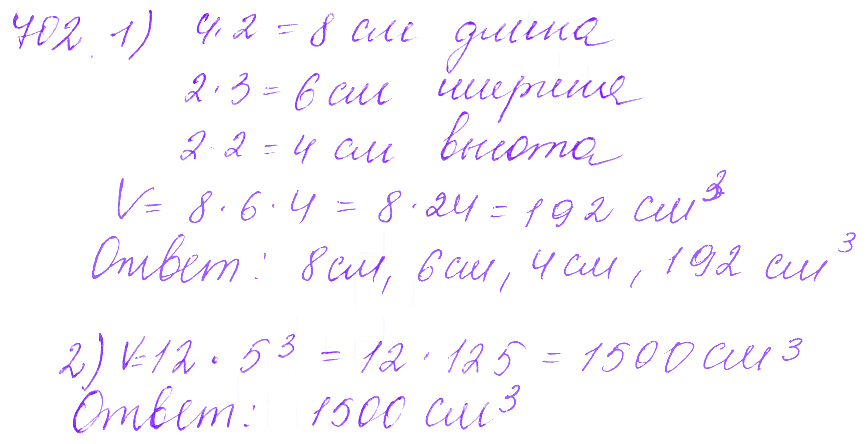 702 1) 4·2 = 8 см длина
2·3 = 6 см ширина
2·2 = 4 см высота
V = 8·6·4 = 8·24 = 192 см³
Ответ: 8 см, 6 см, 4 см, 192 см³
2) V=12·5³ = 12·125 = 1500 см³
Ответ: 1500 см³